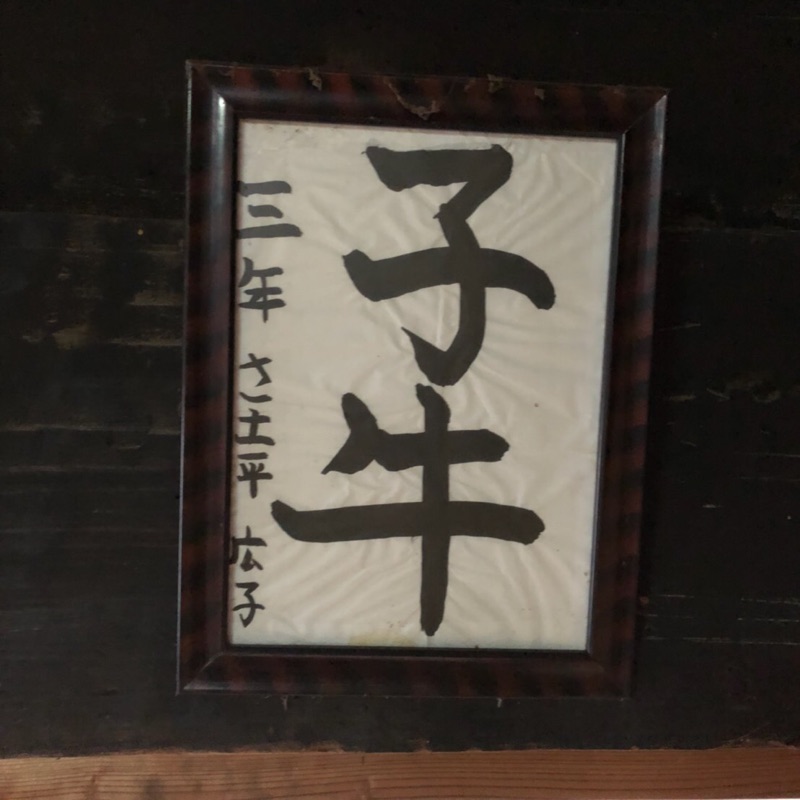 子牛
三年 さ土平 広子